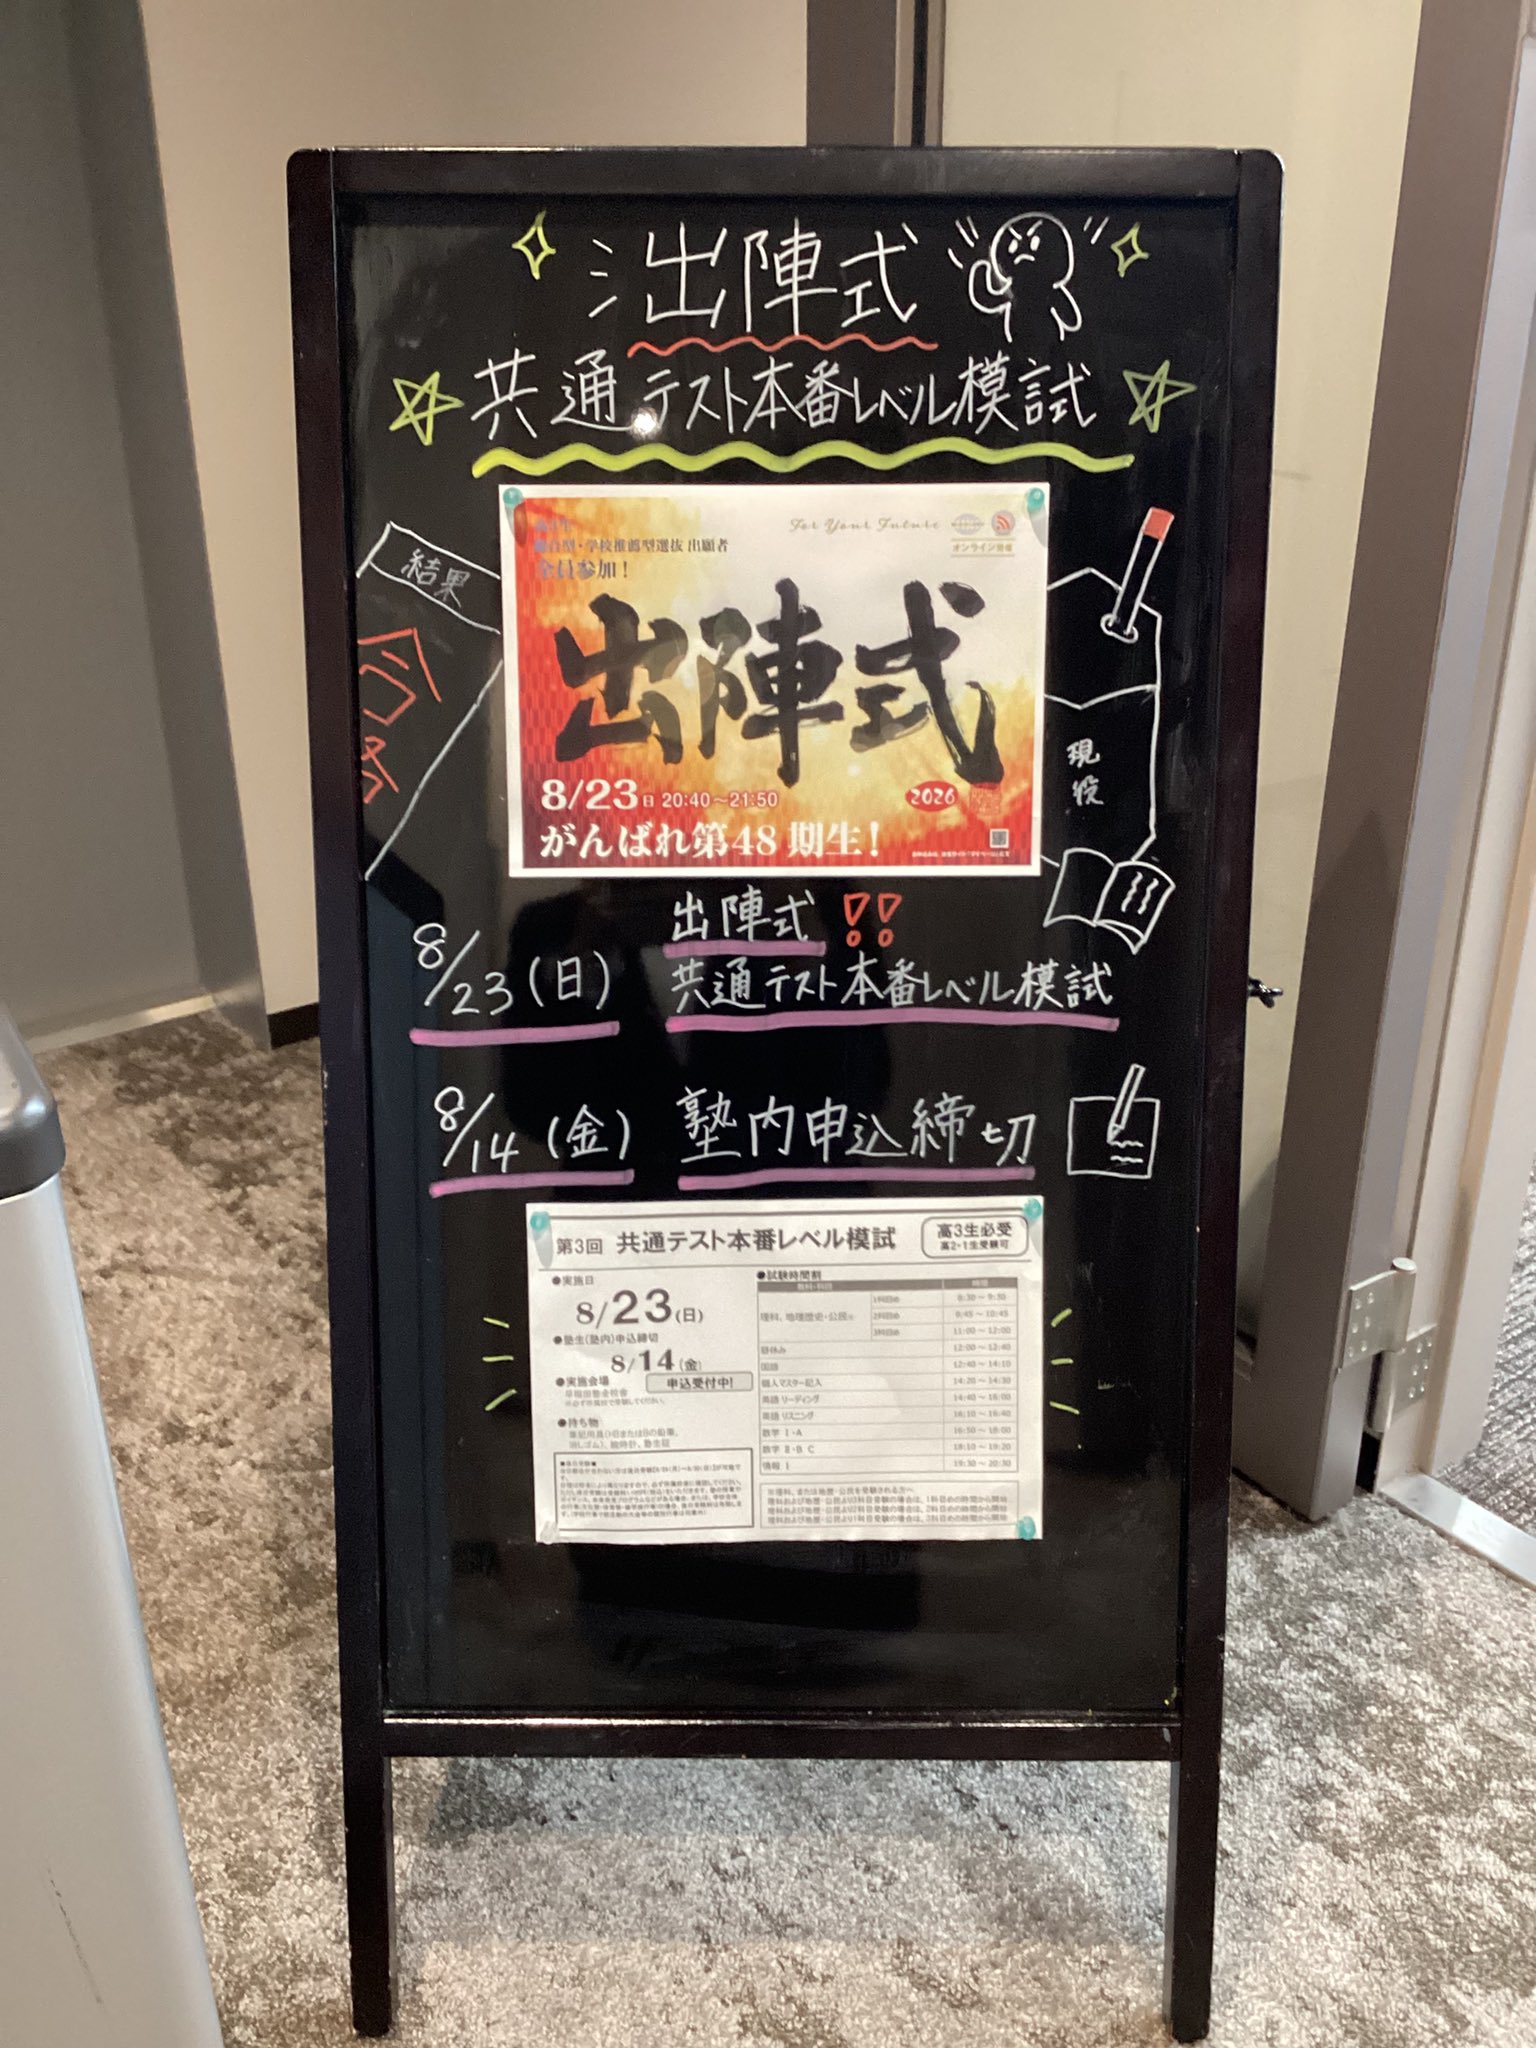 出陣式
共通テスト本番レベル模試
結果
合格
現役
For Your Future
オンライン開催
総合型・学校推薦型選抜 出願者
全員参加！
出陣式
8/23日 20:40～21:50
2026
がんばれ第48期生！
出陣式!!
8/23(日) 共通テスト本番レベル模試
8/14(金) 塾内申込締切
第3回 共通テスト本番レベル模試
高3生必受
高2・1生受験可
●実施日
8/23(日)
●塾生(塾内)申込締切
8/14(金)
●実施会場
申込受付中！
早稲田塾全校舎
※必ず所属校で受験してください。
●持ち物
筆記用具(HBまたはBの鉛筆、
消しゴム)、腕時計、塾生証
●試験時間割
教科・科目 時間
理科、地理歴史・公民※ 1科目め 8:30～9:30
2科目め 9:45～10:45
3科目め 11:00～12:00
昼休み 12:00～12:40
国語 12:40～14:10
個人マスター記入 14:20～14:30
英語 リーディング 14:40～16:00
英語 リスニング 16:10～16:40
数学 Ⅰ・A 16:50～18:00
数学 Ⅱ・B C 18:10～19:20
情報 Ⅰ 19:30～20:30